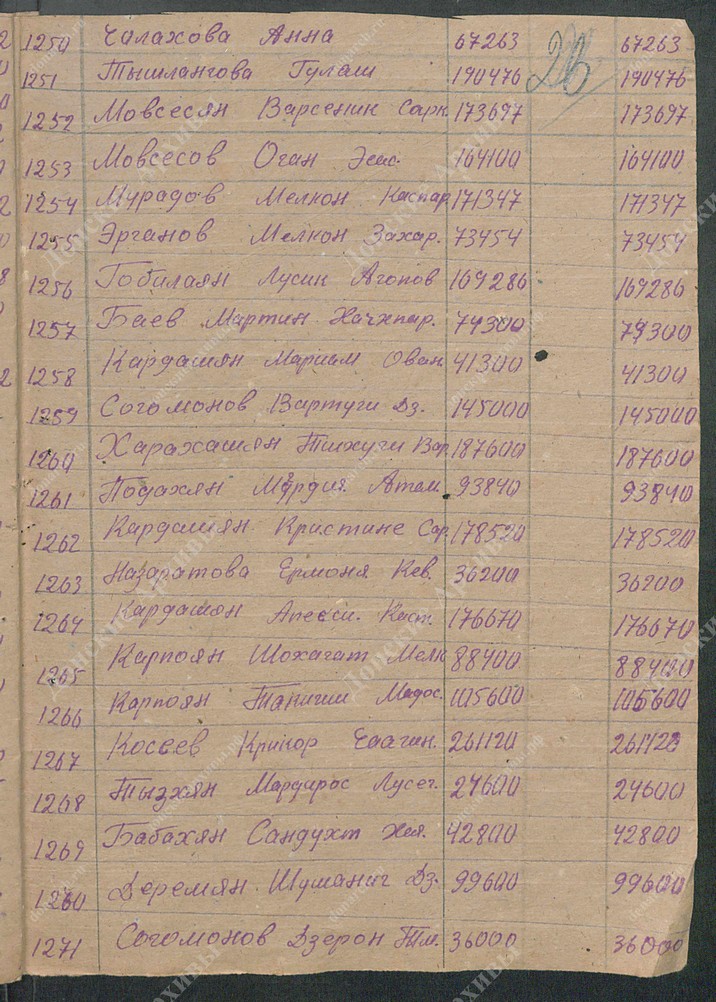 1250 Чалахова Анна 67263 67263
1251 Тышлангова Гулаш 190476 26 190476
1252 Мовсесян Варсеник Сарк. 173697 173697
1253 Мовсесов Оган 164100 164100
1254 Мурадов Мелкон Каспар. 171347 171347
1255 Эрганов Мелкон Захар. 73454 73454
1256 Гобилаян Лусик Агопов 169286 169286
1257 Баев Мартин Хачхпар. 74300 74300
1258 Кардашян Мариам Ован. 41300 41300
1259 Согомонов Вартуги Дз. 145000 145000
1260 Харахашян Тшхуги Вар. 187600 187600
1261 Подахян Атам. 93840 93840
1262 Кардашян Кристине Сар. 178520 178520
1263 Назаратова Ермоня Кев. 36200 36200
1264 Кардашон Апекси. Каст. 176670 176670
1265 Карпоян Шохагат Мелк. 88400 88400
1266 Карпоян Мадос. 105600 105600
1267 Косеев Крикор 261120 261120
1268 Тызхян Мардирос Лусег. 24600 24600
1269 Бабахян Сандухт 42800 42800
1270 Деремян Шуманиг Дз. 99600 99600
1271 Согомонов Дзерон Тм. 36000 36000